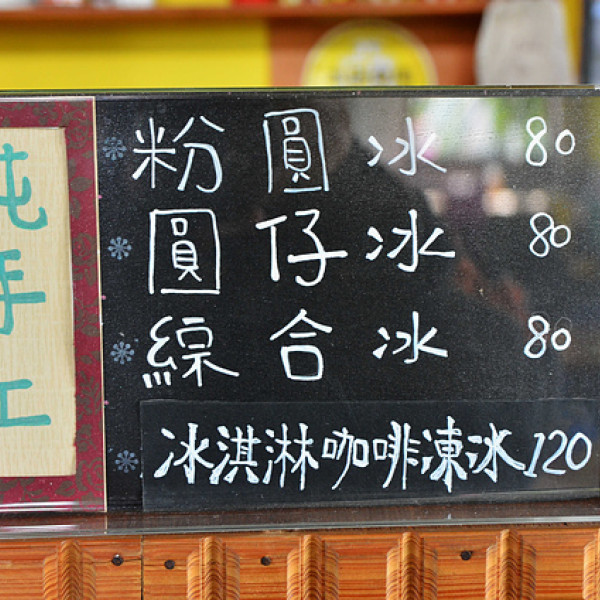 純手工
粉圓冰 80
圓仔冰 80
綜合冰 80
冰淇淋咖啡凍冰 120